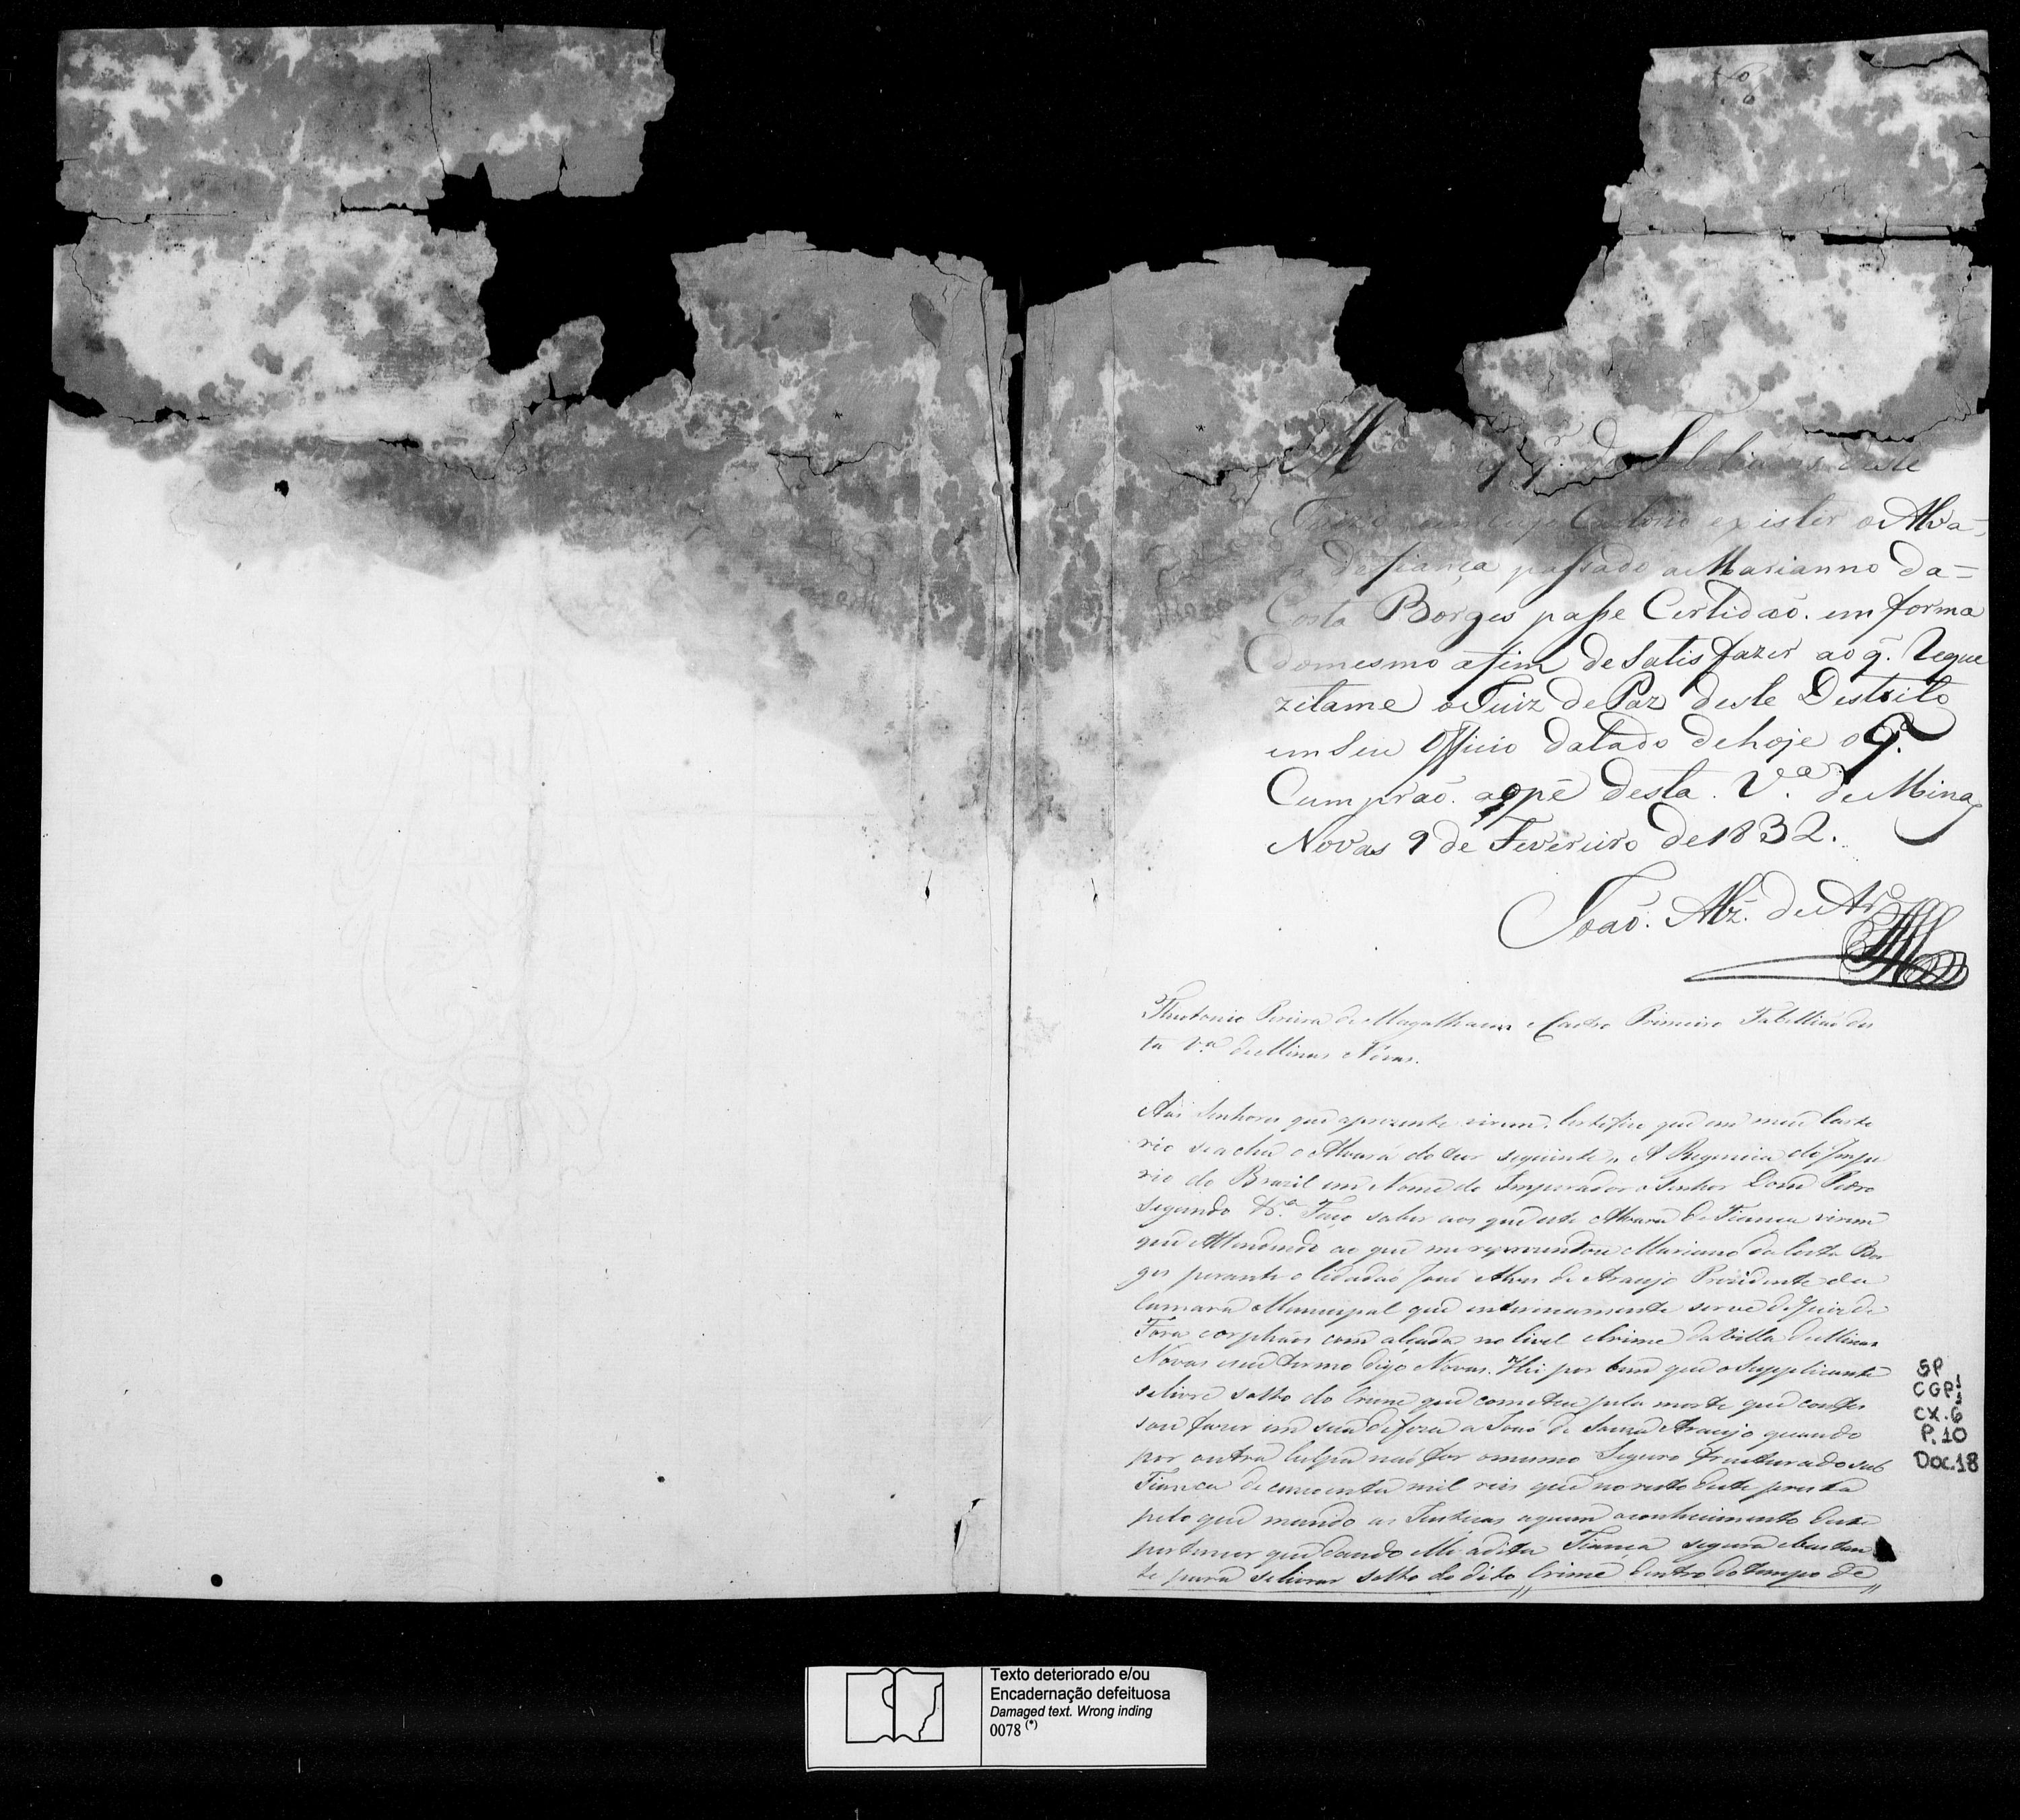 M q. q. do Tabeliaens deste
Juizo em cujo Cartorio existir o Alva-
ra de fiança passado a Marianno da=
Costa Borges passe Certidaõ. em forma
domesmo afim de Satisfazer ao q. Reque
zitame o Juiz de Paz deste Destrito
em Seu Officio datado dehoje o q.
Cumpraõ. aopé desta. V.a de Minas
Novas 9 de Fevereiro de 1832.
Joaõ. Alz. de Ar.o
Theotonio Pereira de Magalhaens e Castro Primeiro Tabelliaõ des
ta V.a de Minas Novas.
Aos Senhores que aprezente virem. Certifico que em meu Carto
rio seacha o Alvará do teor seguinte,, A Regencia do Impe
rio do Brazil em Nome do Imperador o Senhor Dom Pedro
Segundo &.a Faço saber aos que este Alvara de Fianca virem
que Attendendo ao que me reprezentou Mariano da Costa Bor
ges perante o Cidadaõ Joaõ Alves de Araujo Prezidente da
Camara Municipal que interinamente serve de Juiz de
Fora e orphaõs com alçada no Civel e Crime da Villa de Minas
Novas e seu termo digo Novas. Hei por bem que o Supplicante
se livre solto do Crime que cometeu pela morte que confes
sou fazer em sua defeza a Joaõ de Souza Araujo quando
por outra Culpa naõ for o mesmo Seguro sub
Fianca de cincoenta mil reis que no resto deste presta
pelo que mando as Justicas aquem o conhecimento deste
pertencer que dando elle adita Fiança segura e bastan
te para selivrar solto do dito Crime dentro do tempo de
SP
CGP1
CX.6
P.10
Doc.18
Texto deteriorado e/ou
Encadernação defeituosa
Damaged text. Wrong inding
0078 (*)